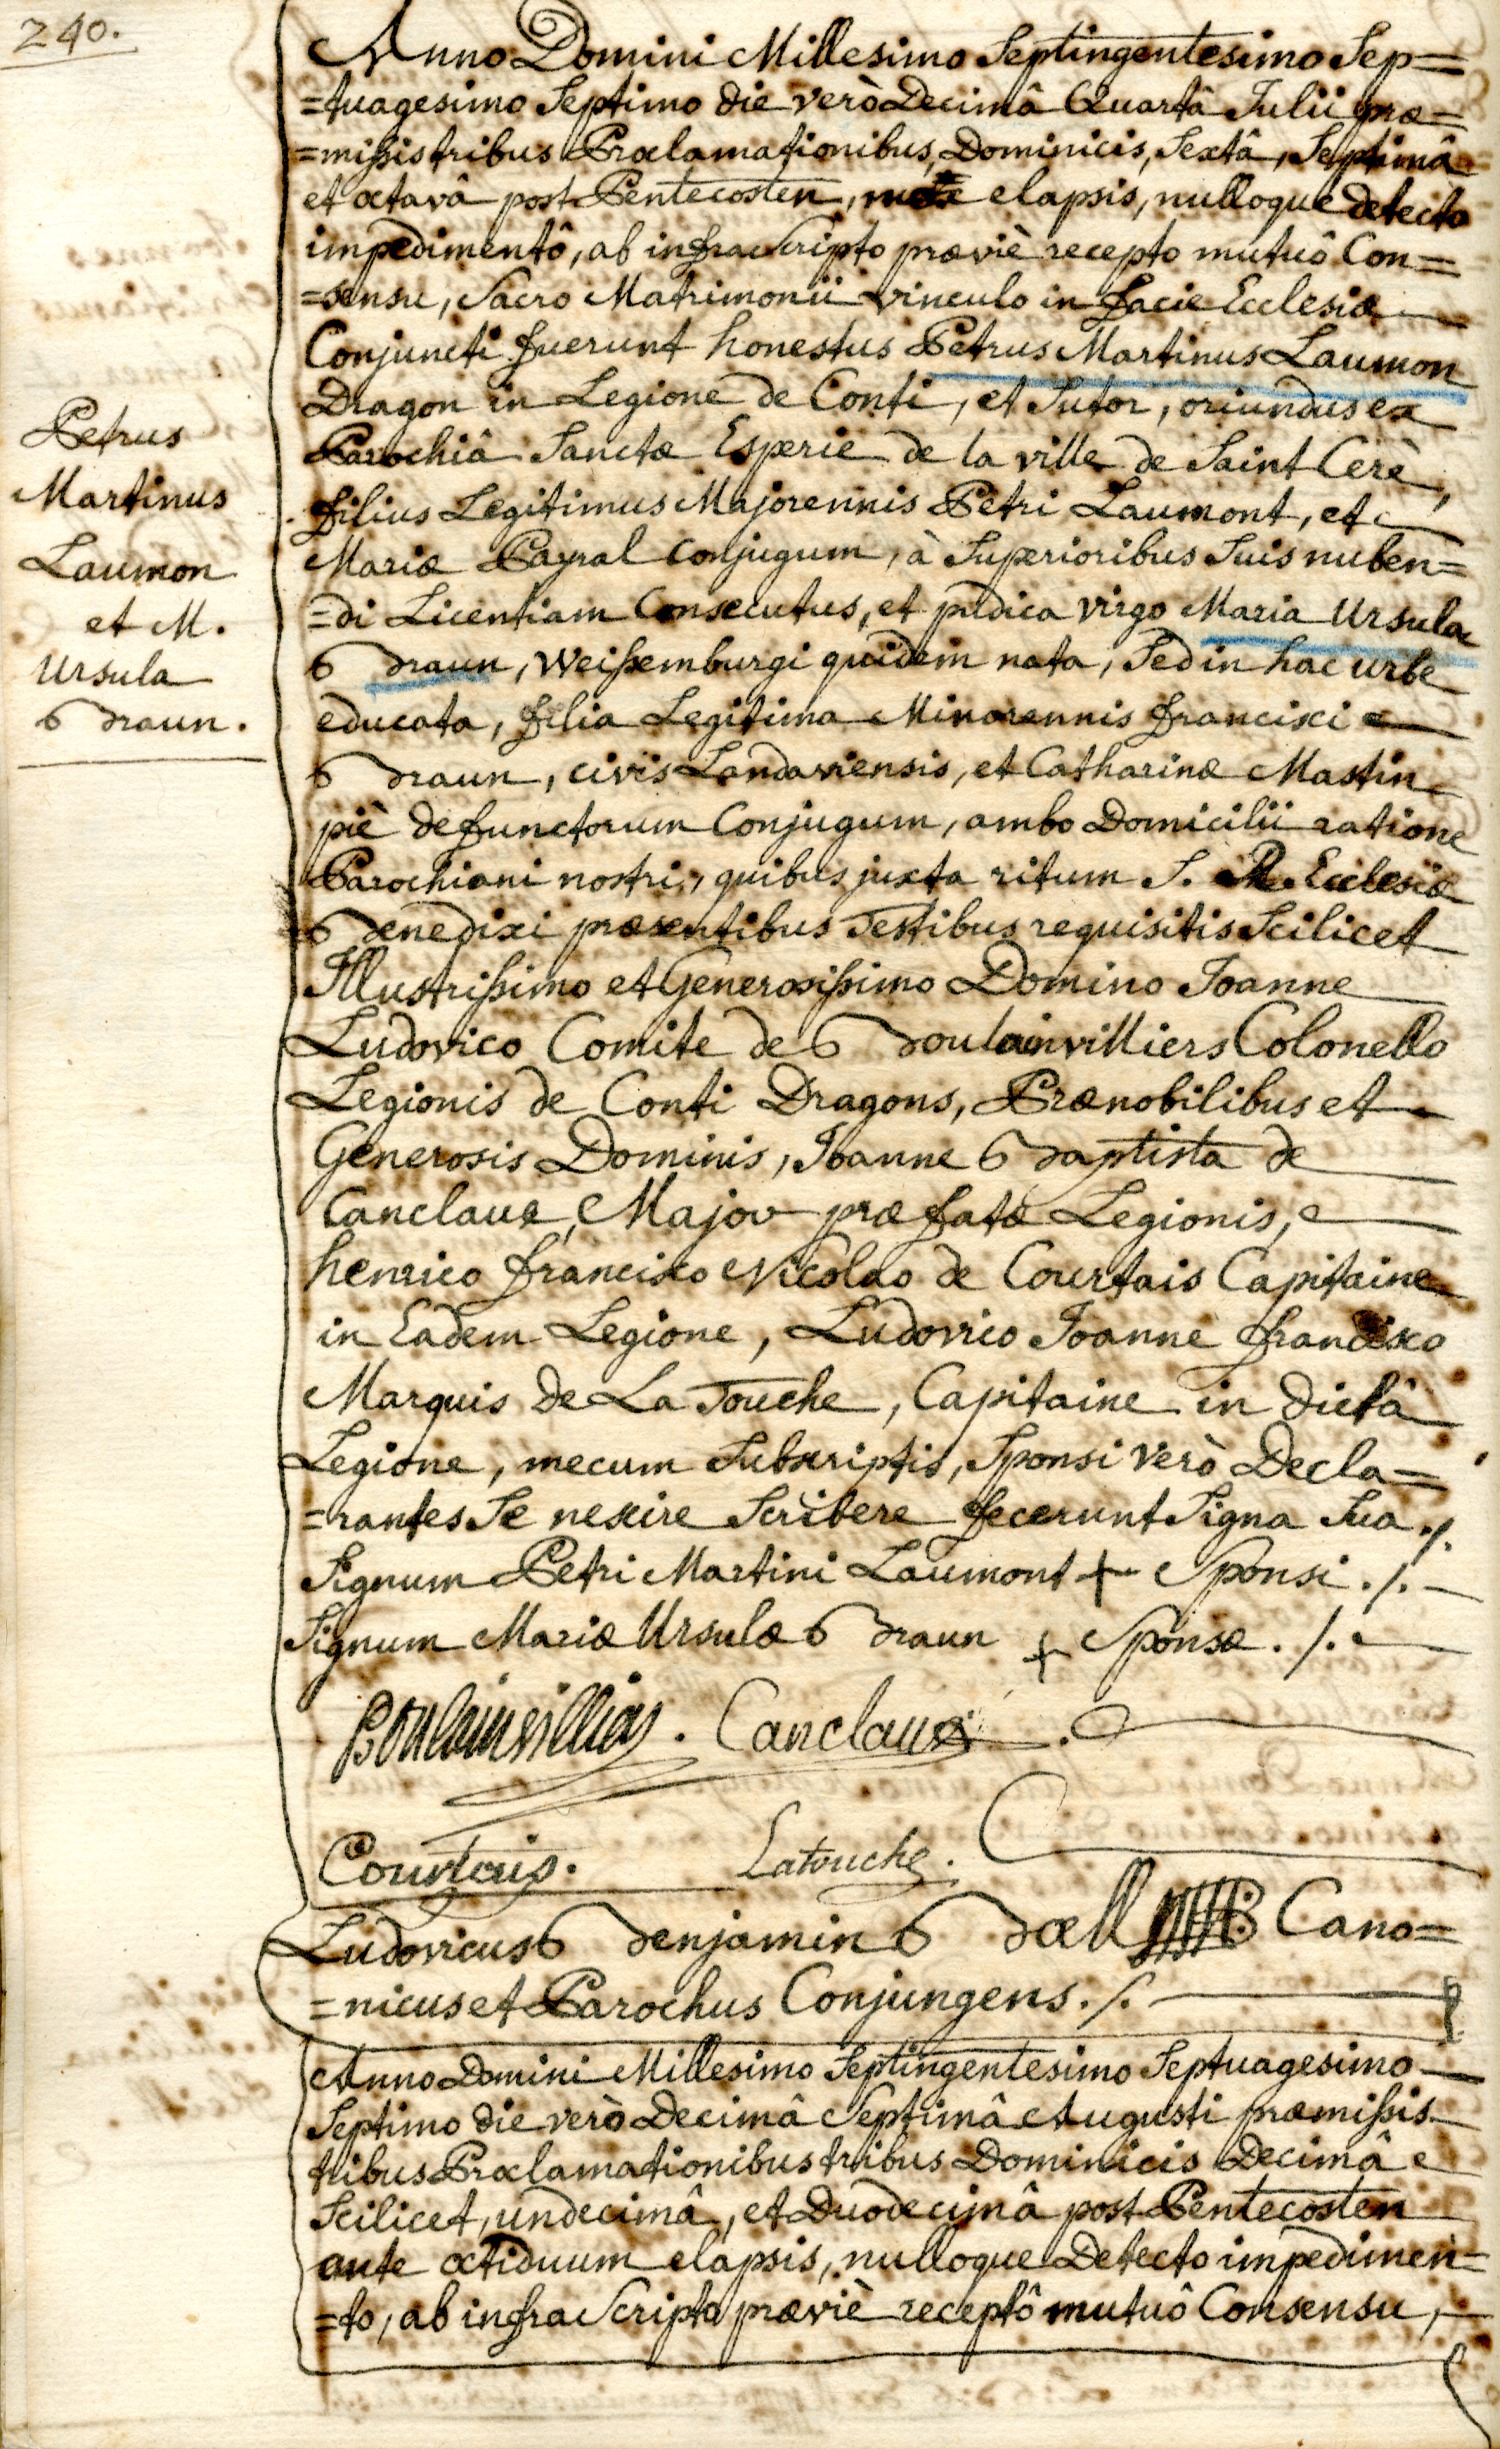 240.
Anno Domini Millesimo Septingentesimo Sep=
=tuagesimo Septimo die verò Decimâ Quartâ Julii præ=
=missis tribus Proclamationibus, Dominicis, Sextâ, Septimâ
et octavâ post Pentecosten, elapsis, nulloque detecto
impedimentô, ab infra Scripto præviè recepto mutuô Con=
=sensu, Sacro Matrimonii vinculo in facie Ecclesiæ
Conjuncti fuerunt honestus Petrus Martinus Laumon
Dragon in Legione de Conti, et Sutor, oriundus ex
Parochiâ Sanctæ Esperie de la ville de Saint Cerè,
filius Legitimus Majorennis Petri Laumont, et
Mariæ Payral conjugum, à Superioribus Suis nuben=
=di Licentiam Consecutus, et pudica virgo Maria Ursula
Braun, Weissemburgi quidem nata, Sed in hac urbe
educata, filia Legitima Minorennis francisci
Braun, civis Landaviensis, et Catharinæ Mastin
piè defunctorum Conjugum, ambo Domicilii ratione
Parochiani nostri, quibus juxta ritum S. R. Ecclesiæ
Benedixi præsentibus Testibus requisitis Scilicet
Illustrissimo et Generosissimo Domino Joanne
Ludovico Comite de Boulainvilliers Colonello
Legionis de Conti Dragons, Prænobilibus et
Generosis Dominis, Joanne Baptista de
Canclaux, Major præfatæ Legionis,
henrico francisco Nicolao de Courtais Capitaine
in Eadem Legione, Ludovico Joanne francisco
Marquis de La Touche, Capitaine in dictâ
Legione, mecum Subscriptis, Sponsi verò Decla=
=rantes Se nescire Scribere fecerunt Signa Sua ./.
Signum Petri Martini Laumont + Sponsi ./.
Signum Mariæ Ursulæ Braun + Sponsæ ./.
Boulainvilliers. Canclaux.
Courtais. Latouche.
Ludovicus Benjamin Bæll Cano=
=nicus et Parochus Conjungens ./.
Petrus
Martinus
Laumon
et M.
Ursula
Braun.
Anno Domini Millesimo Septingentesimo Septuagesimo
Septimo die verò Decimâ Septimâ Augusti præmissis
tribus Proclamationibus tribus Dominicis Decimâ
Scilicet, undecimâ, et Duodecimâ post Pentecosten
ante octiduum elapsis, nulloque Detecto impedimen=
=to, ab infra Scripto præviè receptô mutuô Consensu,